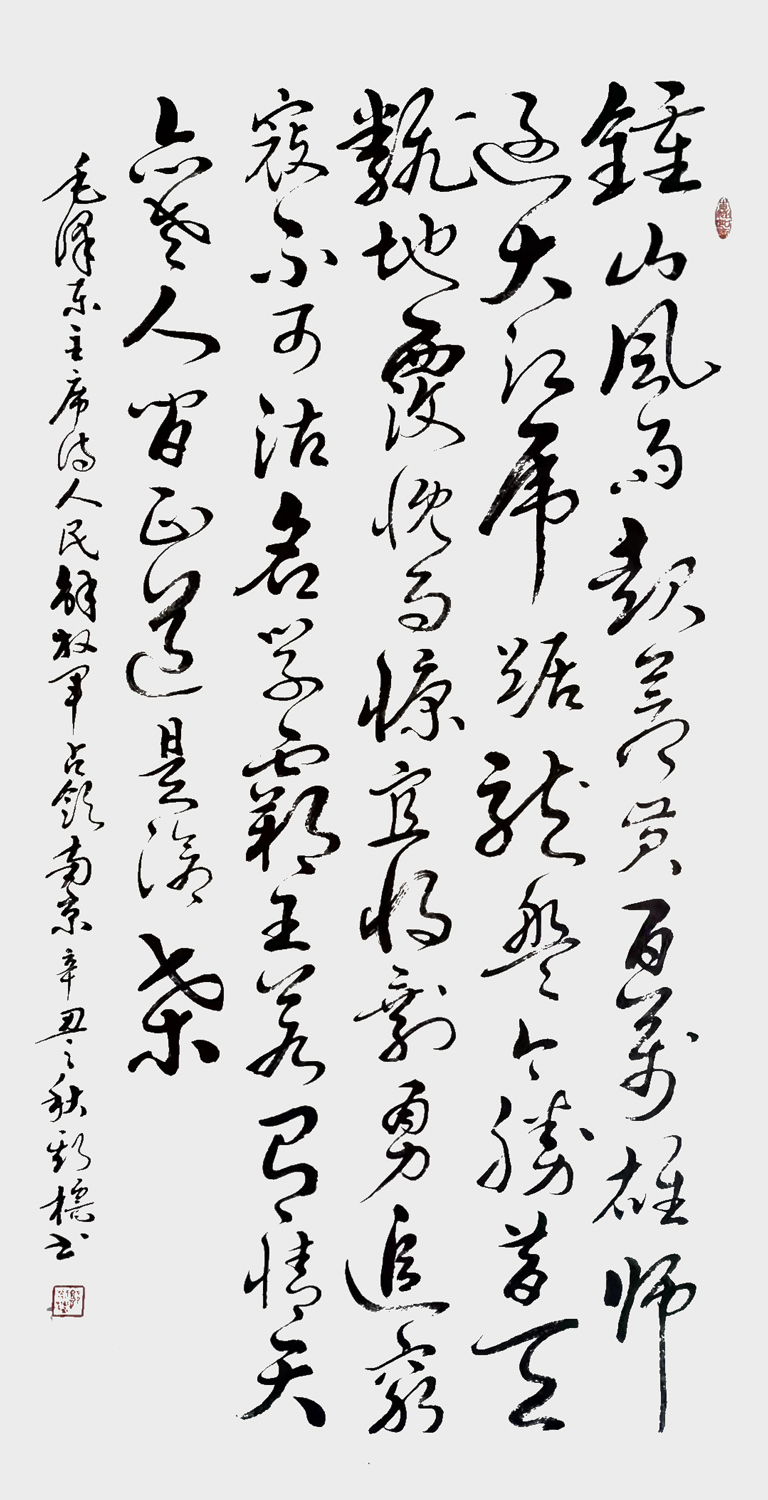 鍾山風雨起蒼黃百萬雄师
过大江虎踞龍盤今勝昔天
翻地覆慨而慷宜将剩勇追窮
寇不可沽名学霸王若有情天
亦老人間正道是滄桑
毛泽东主席诗人民解放军占领南京辛丑之秋书